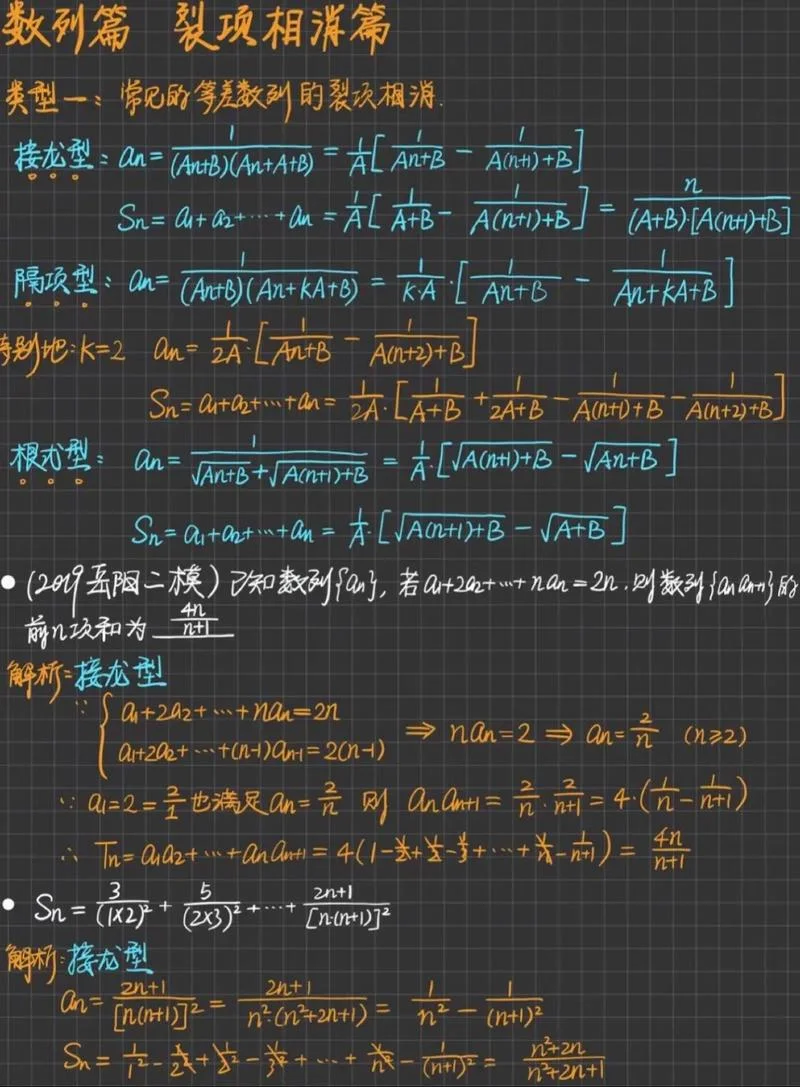 数列篇 裂项相消篇
类型一：常见的等差数列的裂项相消.
接龙型：an=1/((An+B)(An+A+B))=1/A[1/(An+B)-1/(A(n+1)+B)]
Sn=a1+a2+⋯+an=1/A[1/(A+B)-1/(A(n+1)+B)]=n/((A+B)·[A(n+1)+B])
隔项型：an=1/((An+B)(An+kA+B))=1/(k·A)·[1/(An+B)-1/(An+kA+B)]
特别地：k=2 an=1/(2A)·[1/(An+B)-1/(A(n+2)+B)]
Sn=a1+a2+⋯+an=1/(2A)·[1/(A+B)+1/(2A+B)-1/(A(n+1)+B)-1/(A(n+2)+B)]
根式型：an=1/(√(An+B)+√(A(n+1)+B))=1/A·[√(A(n+1)+B)-√(An+B)]
Sn=a1+a2+⋯+an=1/A·[√(A(n+1)+B)-√(A+B)]
• (2019岳阳二模) 已知数列{an}, 若a1+2a2+⋯+nan=2n, 则数列{anan+1}的
前n项和为 4n/(n+1)
解析：接龙型
∵ { a1+2a2+⋯+nan=2n
a1+2a2+⋯+(n-1)an-1=2(n-1) ⇒ nan=2 ⇒ an=2/n (n≥2)
∵ a1=2=2/1也满足an=2/n 则 anan+1=2/n·2/(n+1)=4·(1/n-1/(n+1))
∴ Tn=a1a2+⋯+anan+1=4(1-1/2+1/2-1/3+⋯+1/n-1/(n+1))=4n/(n+1)
• Sn=3/(1×2)²+5/(2×3)²+⋯+(2n+1)/[n·(n+1)]²
解析：接龙型
an=(2n+1)/[n(n+1)]²=(2n+1)/(n²·(n²+2n+1))=1/n²-1/(n+1)²
Sn=1/1²-1/2²+1/2²-1/3²+⋯+1/n²-1/(n+1)²=(n²+2n)/(n²+2n+1)